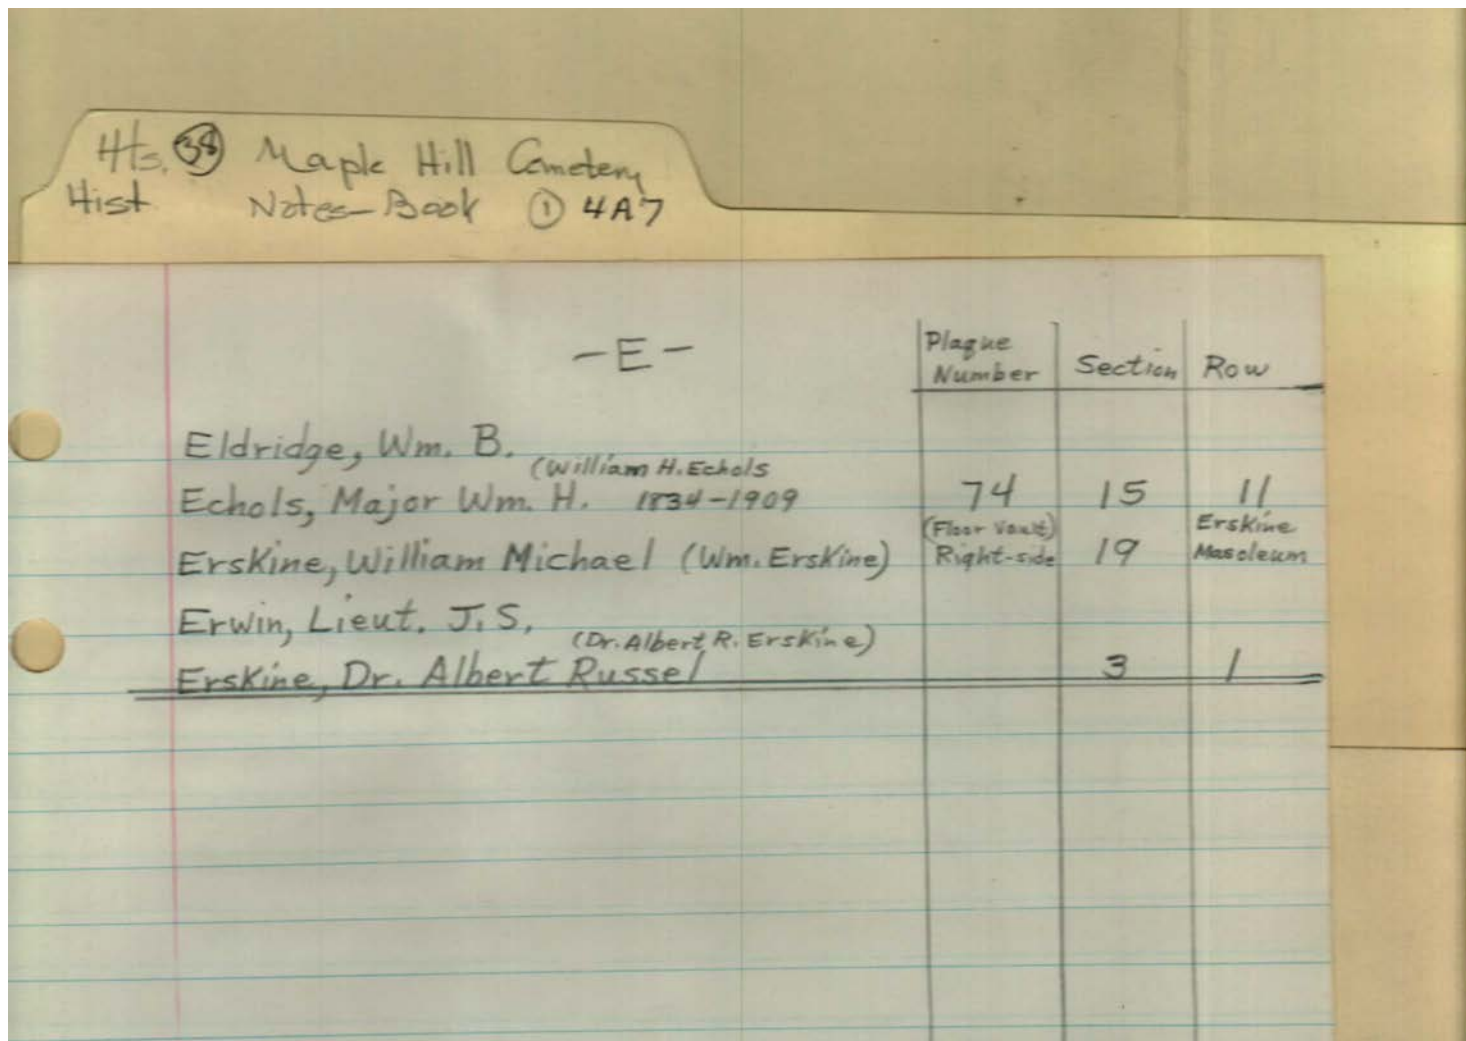 Hts. 38 Maple Hill Cemetery
Hist Notes-Book ① 4A7
-E-
Plaque Number Section Row
Eldridge, Wm. B.
(William H. Echols
Echols, Major Wm. H. 1834-1909 74 15 11
Erskine, William Michael (Wm. Erskine) (Floor Vault) Right-side 19 Erskine Masoleum
Erwin, Lieut. J.S.
(Dr. Albert R. Erskine)
Erskine, Dr. Albert Russel 3 1